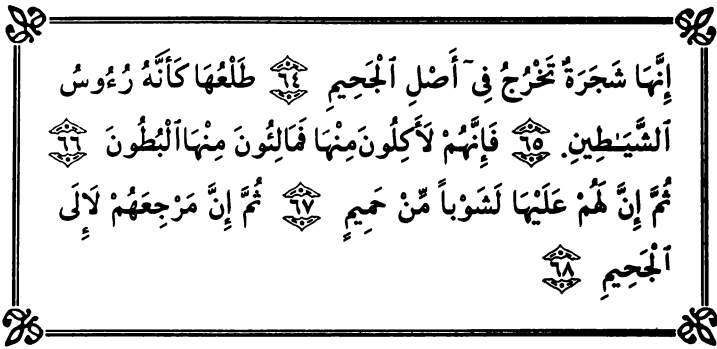 إِنَّهَا شَجَرَةٌ تَخْرُجُ فِىٓ أَصْلِ ٱلْجَحِيمِ ٦٤ طَلْعُهَا كَأَنَّهُ رُءُوسُ
ٱلشَّيَـٰطِينِ. ٦٥ فَإِنَّهُمْ لَأَكِلُونَ مِنْهَا فَمَالِئُونَ مِنْهَا ٱلْبُطُونَ ٦٦
ثُمَّ إِنَّ لَهُمْ عَلَيْهَا لَشَوْباً مِّنْ حَمِيمٍ ٦٧ ثُمَّ إِنَّ مَرْجِعَهُمْ لَإِلَى
ٱلْجَحِيمِ ٦٨